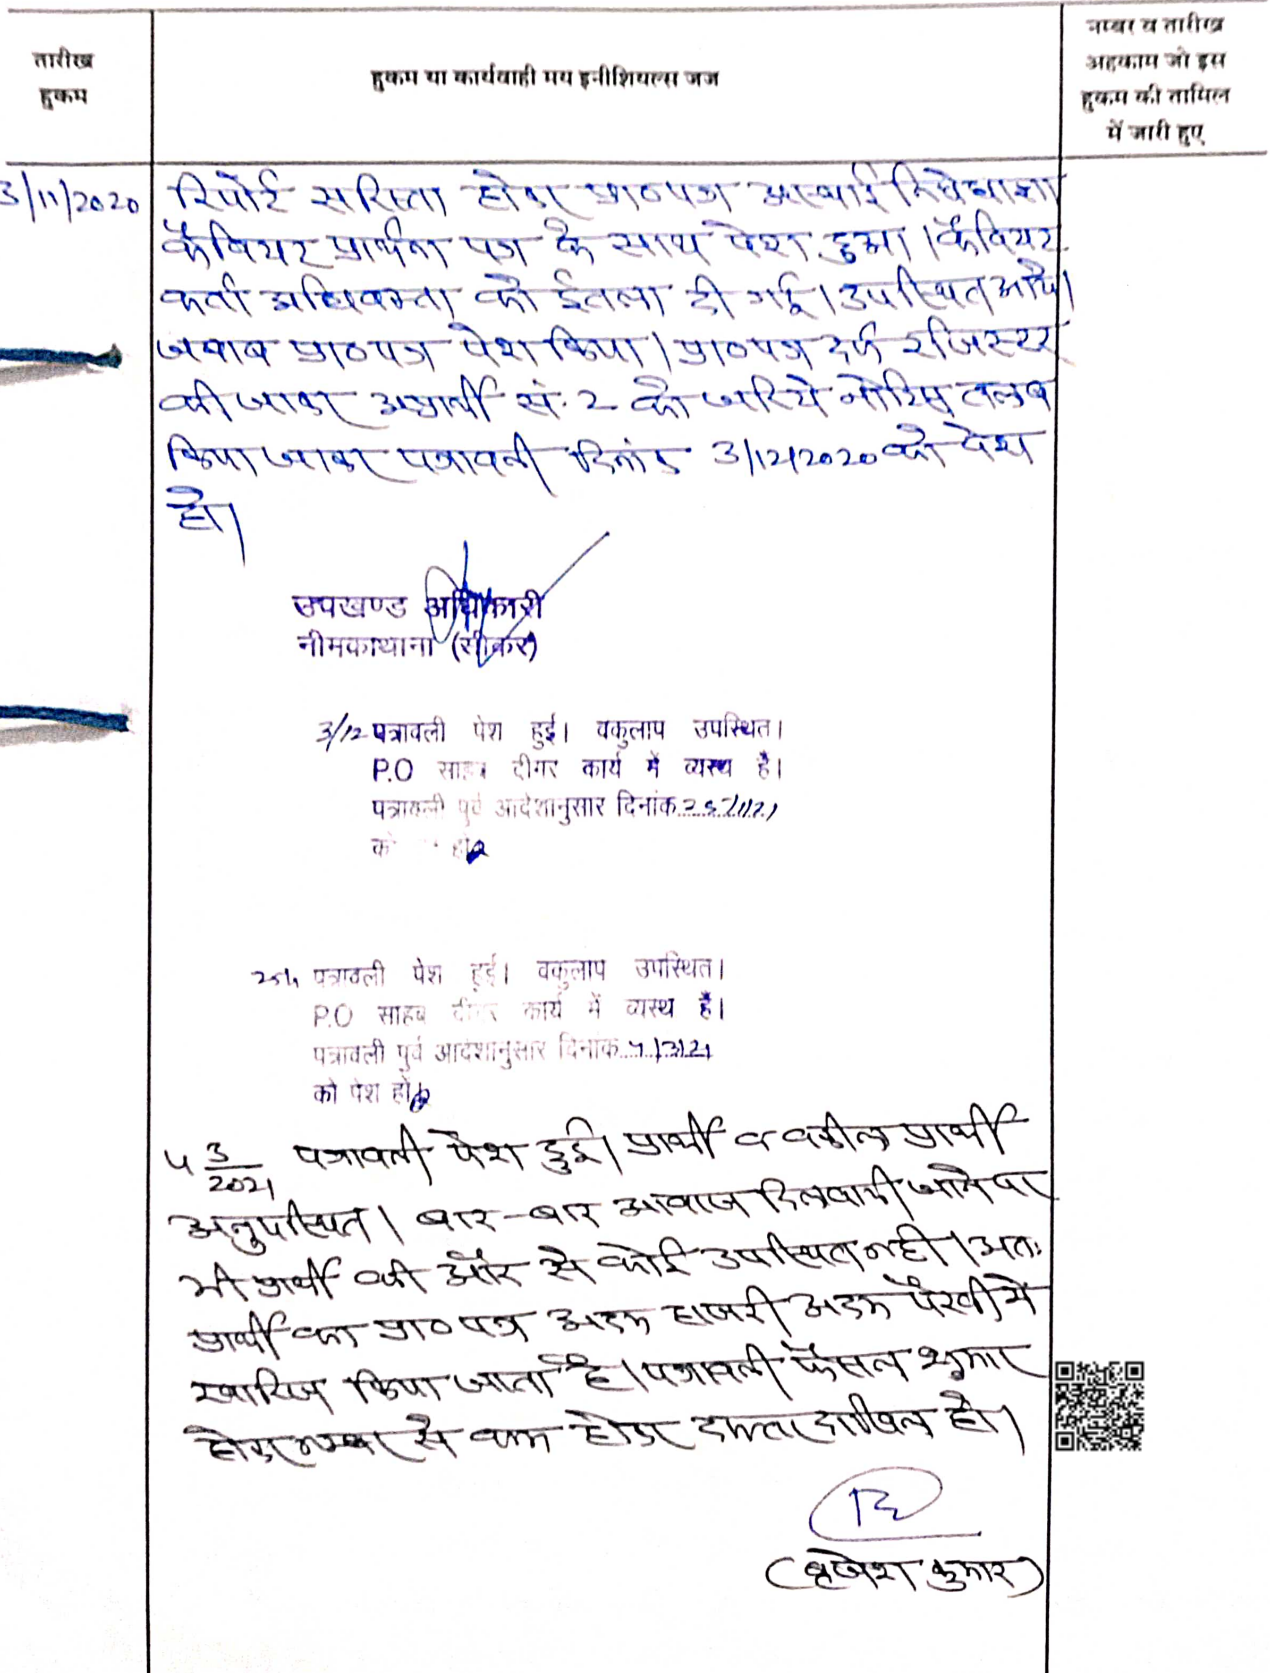 तारीख
हुकम
हुकम या कार्यवाही मय इनीशियल्स जज
नम्बर व तारीख
अहकाम जो इस
हुकम की तामिल
में जारी हुए
3/11/2020
रिपोर्ट सरिस्ता होकर प्रा०पत्र अस्थाई निषेधाज्ञा
कैवियर प्रार्थना पत्र के साथ पेश हुआ। कैवियर
कर्ता अधिवक्ता को ईतला दी गई। उपस्थित आये।
जवाब प्रा०पत्र पेश किया। प्रा०पत्र दर्ज रजिस्टर
की जाकर अप्रार्थी सं. 2 को जरिये नोटिस तलब
किया जाकर पत्रावली दिनांक 3/12/2020 को पेश
हो।
उपखण्ड अधिकारी
नीमकाथाना (सीकर)
3/12 पत्रावली पेश हुई। वकुलाप उपस्थित।
P.O साहब दीगर कार्य में व्यस्थ है।
पत्रावली पुर्व आदेशानुसार दिनांक 25/1/21
को हो
25/1 पत्रावली पेश हुई। वकुलाप उपस्थित।
P.O साहब दीगर कार्य में व्यस्थ है।
पत्रावली पुर्व आदेशानुसार दिनांक 4/3/21
को पेश हो
4 3/2021 पत्रावली पेश हुई। प्रार्थी व वकील प्रार्थी
अनुपस्थित। बार-बार आवाज दिलवायी जाने पर
भी प्रार्थी की और से कोई उपस्थित नही। अतः
प्रार्थी का प्रा०पत्र अदम हाजरी अदम पैरवी में
खारिज किया जाता है। पत्रावली फैसल शुमार
होकर नम्बर से कम होकर दफ्तर दाखिल हो।
(बृजेश कुमार)